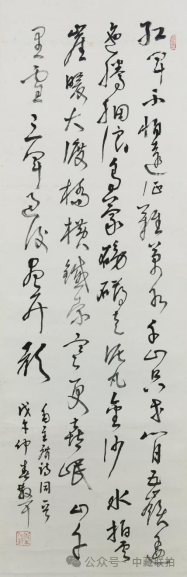 紅軍不怕遠征難萬水千山只等閒五嶺逶
迤騰細浪烏蒙磅礴走泥丸金沙水拍雲
崖暖大渡橋橫鐵索寒更喜岷山千
里雪三軍過後盡開顏
主席詩詞
戊午仲春
公众号 · 中藏联拍